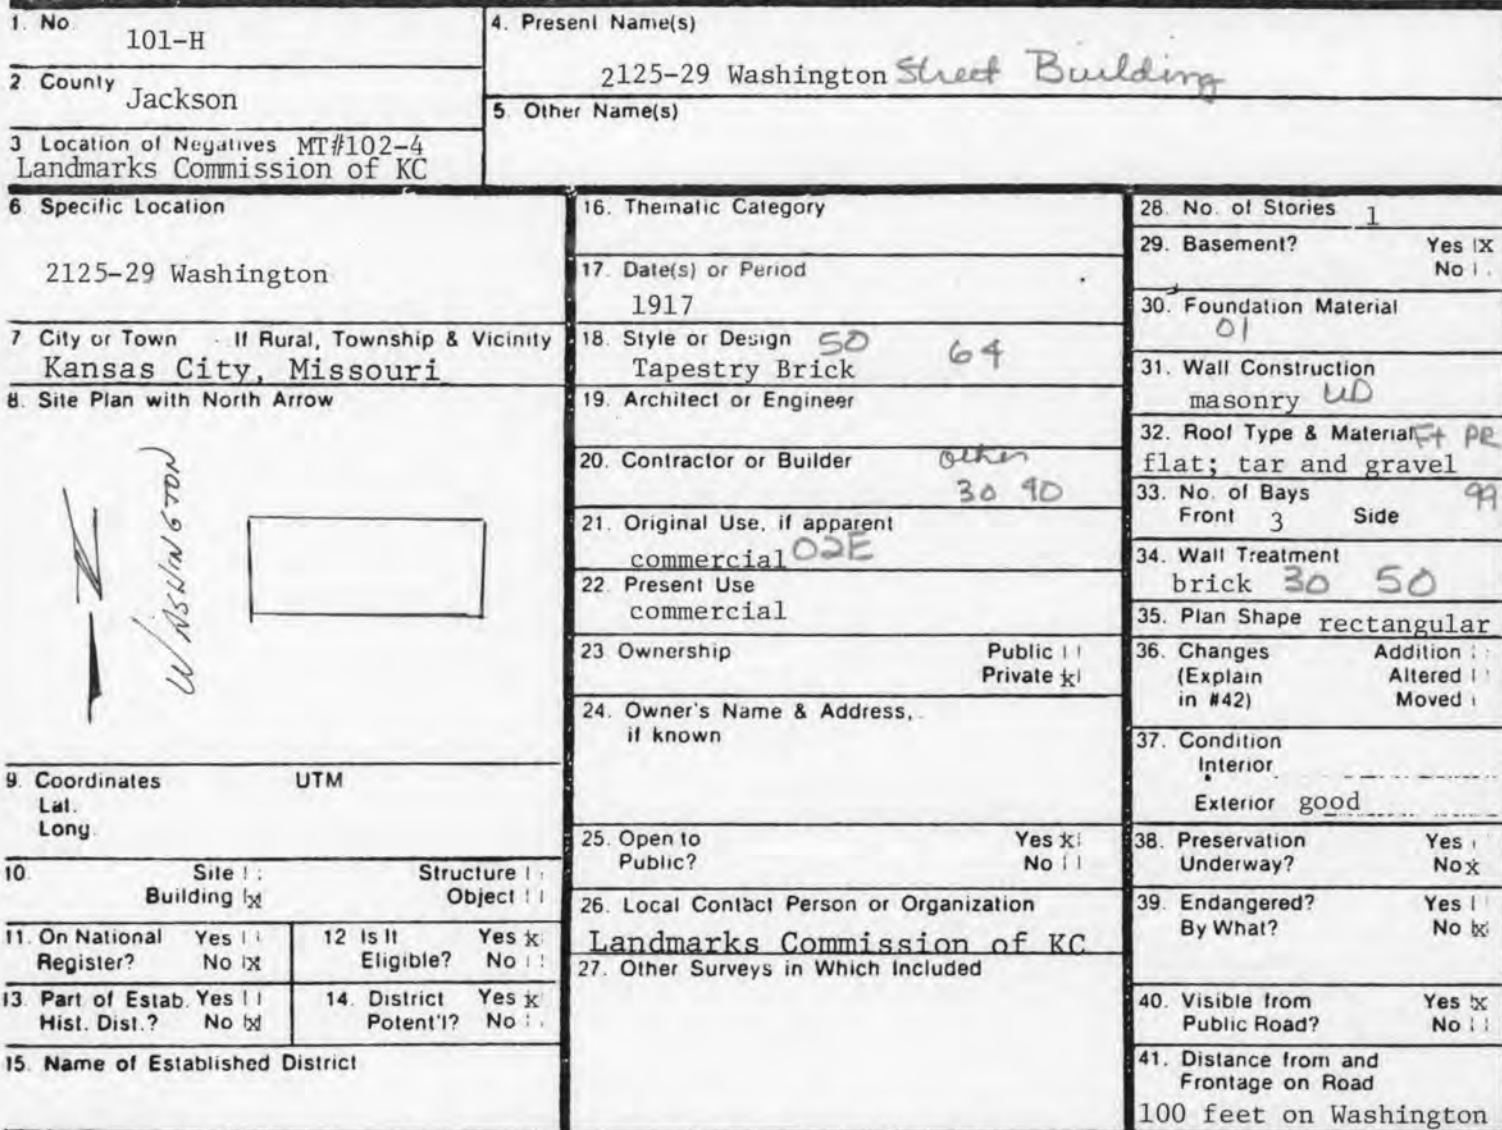 1. No. 101-H
2 County Jackson
3 Location of Negatives MT#102-4
Landmarks Commission of KC
4. Present Name(s)
2125-29 Washington Street Building
5. Other Name(s)
6 Specific Location
2125-29 Washington
7 City or Town If Rural, Township & Vicinity
Kansas City, Missouri
8. Site Plan with North Arrow
N
WASHINGTON
9. Coordinates UTM
Lat.
Long.
10. Site Structure
Building x Object
11. On National Yes
Register? No x
12 Is It Yes x
Eligible? No
13. Part of Estab. Yes
Hist. Dist.? No x
14. District Yes x
Potent'l? No
15. Name of Established District
16. Thematic Category
17. Date(s) or Period
1917
18. Style or Design 50 64
Tapestry Brick
19. Architect or Engineer
20. Contractor or Builder other
30 90
21. Original Use, if apparent
commercial 02E
22. Present Use
commercial
23 Ownership Public
Private x
24. Owner's Name & Address,
if known
25. Open to Yes x
Public? No
26. Local Contact Person or Organization
Landmarks Commission of KC
27. Other Surveys in Which Included
28. No. of Stories 1
29. Basement? Yes x
No
30. Foundation Material
01
31. Wall Construction
masonry UD
32. Roof Type & Material Ft PR
flat; tar and gravel
33. No. of Bays 99
Front 3 Side
34. Wall Treatment
brick 30 50
35. Plan Shape rectangular
36. Changes Addition
(Explain Altered
in #42) Moved
37. Condition
Interior
Exterior good
38. Preservation Yes
Underway? No x
39. Endangered? Yes
By What? No x
40. Visible from Yes x
Public Road? No
41. Distance from and
Frontage on Road
100 feet on Washington